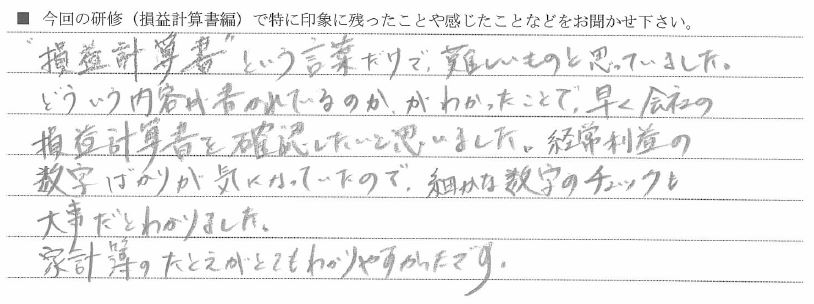 ■ 今回の研修（損益計算書編）で特に印象に残ったことや感じたことなどをお聞かせ下さい。
“損益計算書”という言葉だけで、難しいものと思っていました。
どういう内容が書かれているのか、がわかったことで、早く会社の
損益計算書を確認したいと思いました。経常利益の
数字ばかりが気になっていたので、細かな数字のチェックも
大事だとわかりました。
家計簿のたとえがとてもわかりやすかったです。